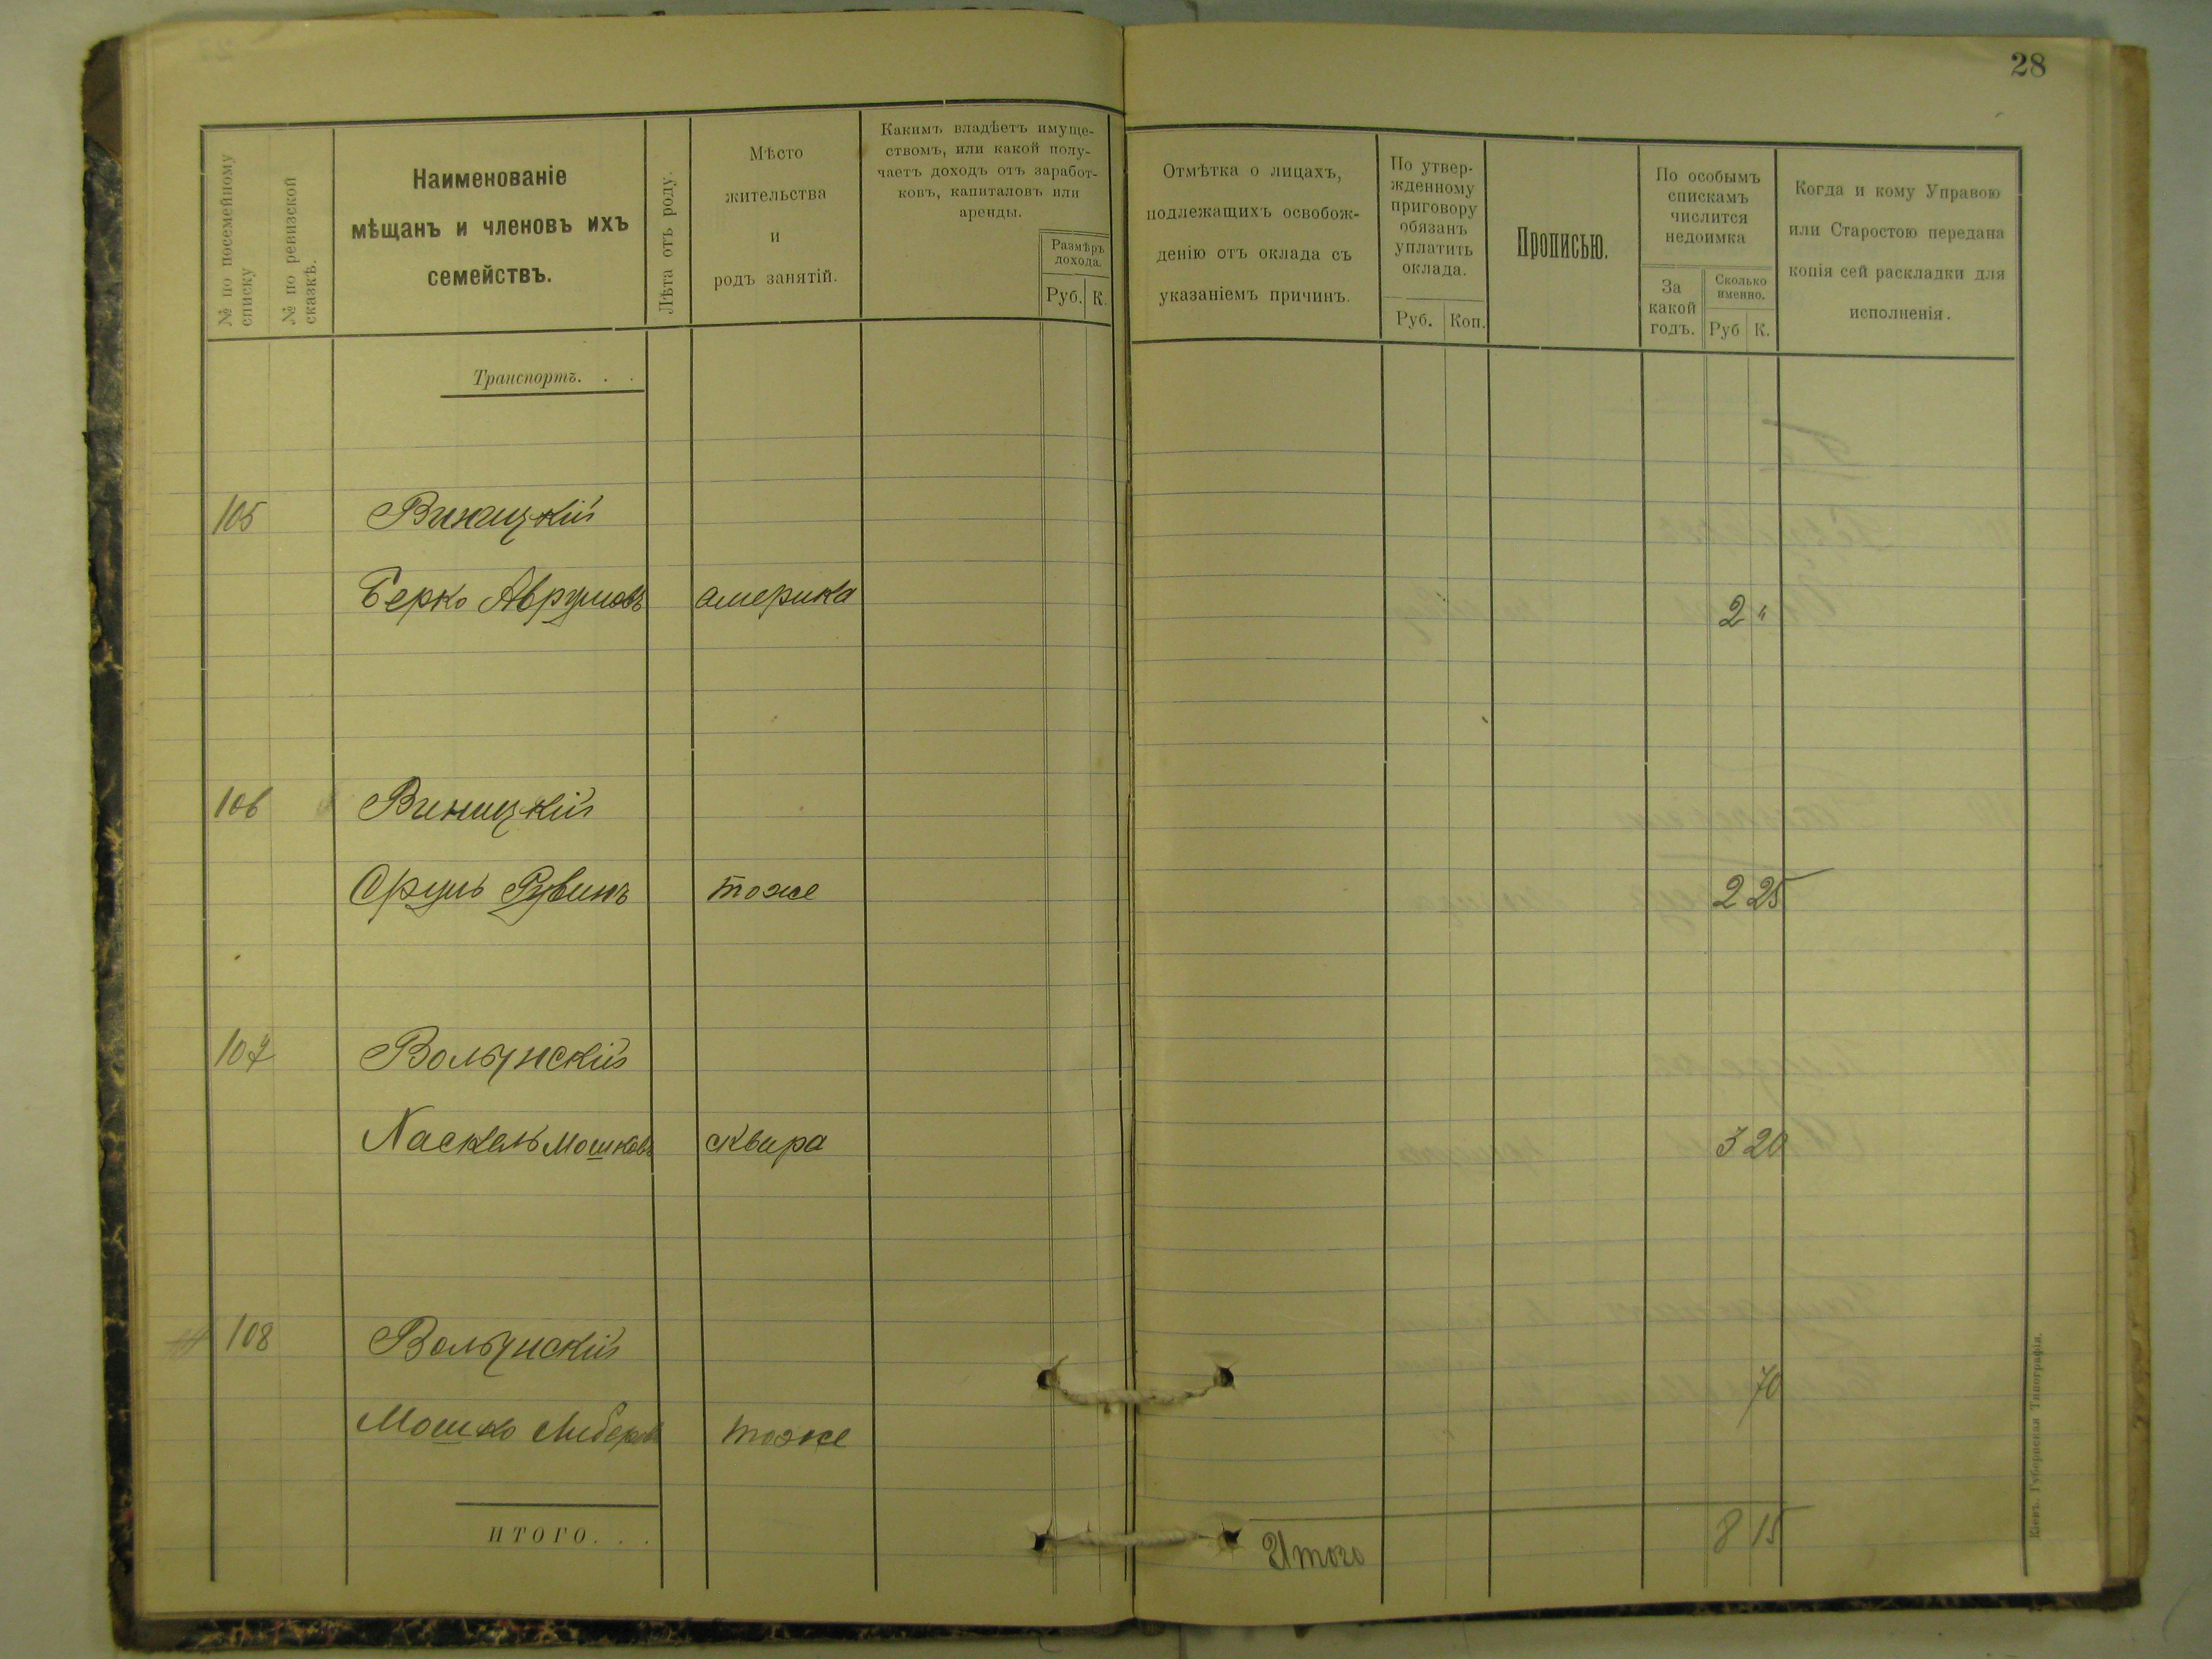 28
№ по посемейному
списку
№ по ревизской
сказкѣ.
Наименованіе
мѣщанъ и членовъ ихъ
семействъ.
Лѣта отъ роду.
Мѣсто
жительства
и
родъ занятій.
Какимъ владѣетъ имуще-
ствомъ, или какой полу-
чаетъ доходъ отъ заработ-
ковъ, капиталовъ или
аренды.
Размѣръ
дохода.
Руб. К.
Отмѣтка о лицахъ,
подлежащихъ освобож-
денію отъ оклада съ
указаніемъ причинъ.
По утвер-
жденному
приговору
обязанъ
уплатить
оклада.
Руб. Коп.
Прописью.
По особымъ
спискамъ
числится
недоимка
За
какой
годъ.
Сколько
именно.
Руб К.
Когда и кому Управою
или Старостою передана
копія сей раскладки для
исполненія.
Транспортъ. . .
105 Виницкій
Берко Аврумовъ америка 2 "
106 Виницкій
Сруль Рувинъ тоже 2 25
107 Волынскій
Хаскель Мошковъ сквира 3 20
108 Волынскій
70
Мошко Лейберовъ тоже
ИТОГО. . .
Итого 8 15
Кіевъ. Губернская Типографія.